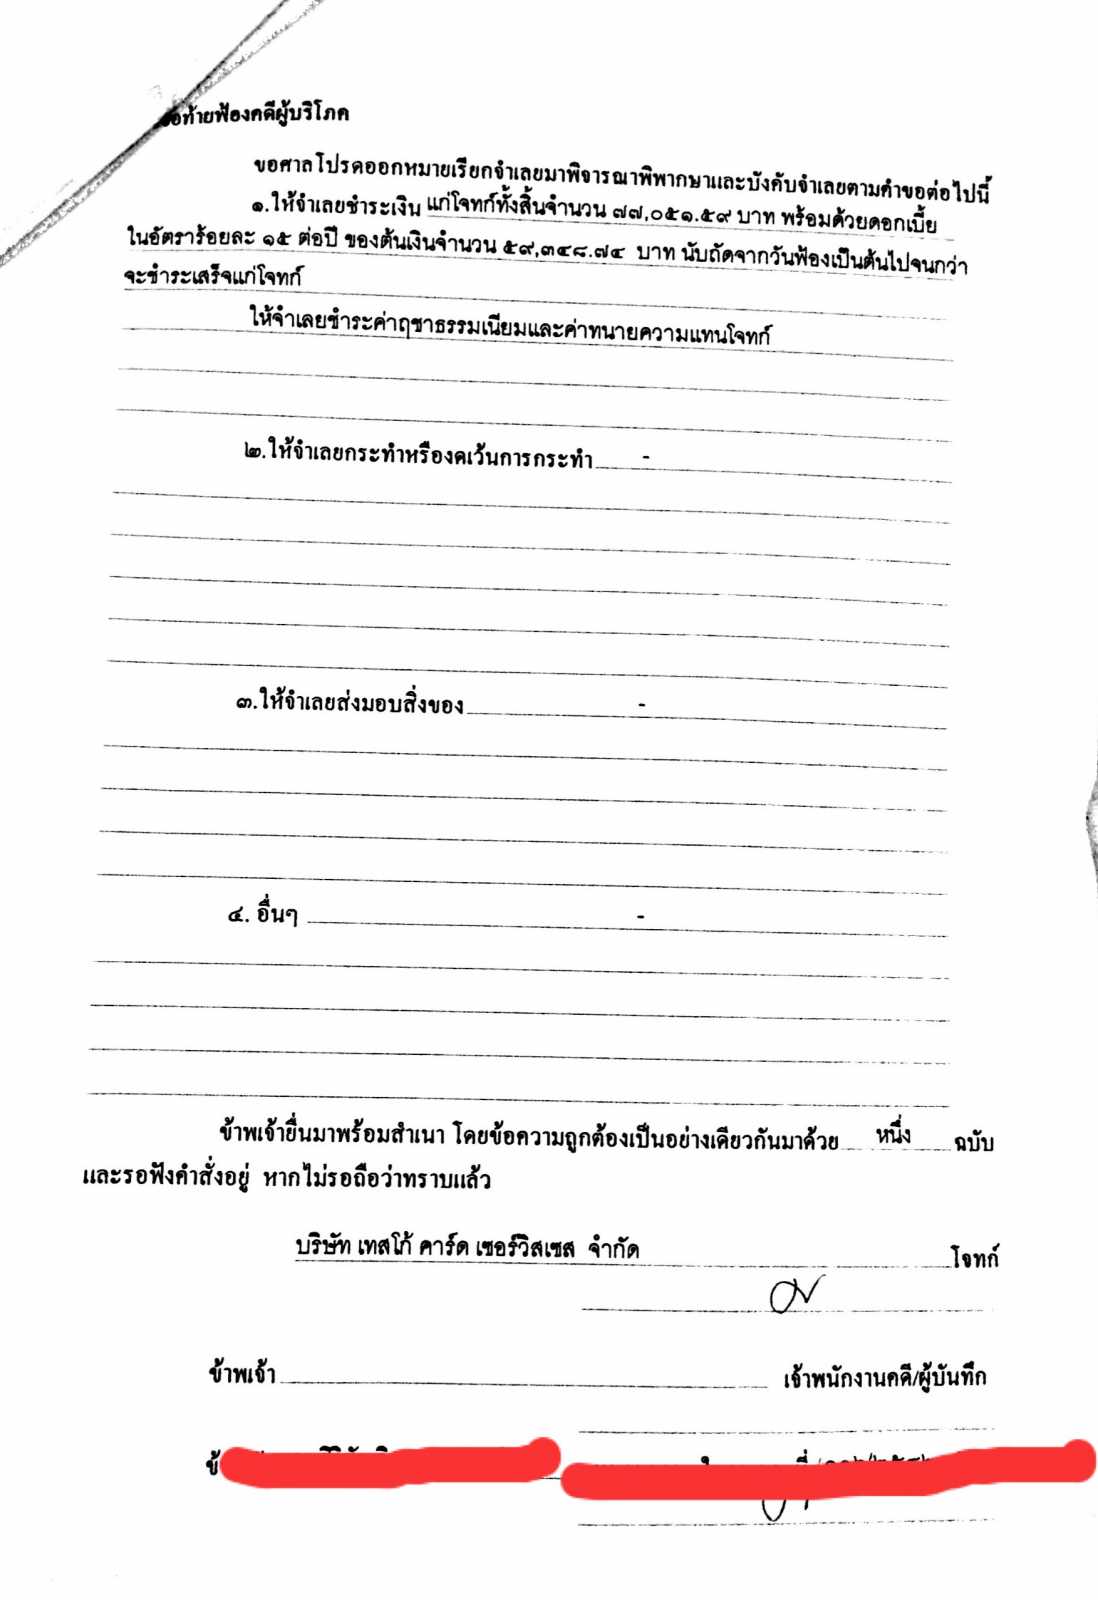 ท้ายฟ้องคดีผู้บริโภค
ขอศาลโปรดออกหมายเรียกจำเลยมาพิจารณาพิพากษาและบังคับจำเลยตามคำขอต่อไปนี้
๑.ให้จำเลยชำระเงิน แก่โจทก์ทั้งสิ้นจำนวน ๗๗,๐๕๑.๕๙ บาท พร้อมด้วยดอกเบี้ย
ในอัตราร้อยละ ๑๕ ต่อปี ของต้นเงินจำนวน ๕๙,๓๔๘.๗๔ บาท นับถัดจากวันฟ้องเป็นต้นไปจนกว่า
จะชำระเสร็จแก่โจทก์
ให้จำเลยชำระค่าฤชาธรรมเนียมและค่าทนายความแทนโจทก์
๒.ให้จำเลยกระทำหรืองดเว้นการกระทำ -
๓.ให้จำเลยส่งมอบสิ่งของ -
๔. อื่นๆ -
ข้าพเจ้ายื่นมาพร้อมสำเนา โดยข้อความถูกต้องเป็นอย่างเดียวกันมาด้วย หนึ่ง ฉบับ
และรอฟังคำสั่งอยู่ หากไม่รอถือว่าทราบแล้ว
บริษัท เทสโก้ คาร์ด เซอร์วิสเซส จำกัด โจทก์
ข้าพเจ้า เจ้าพนักงานคดี/ผู้บันทึก